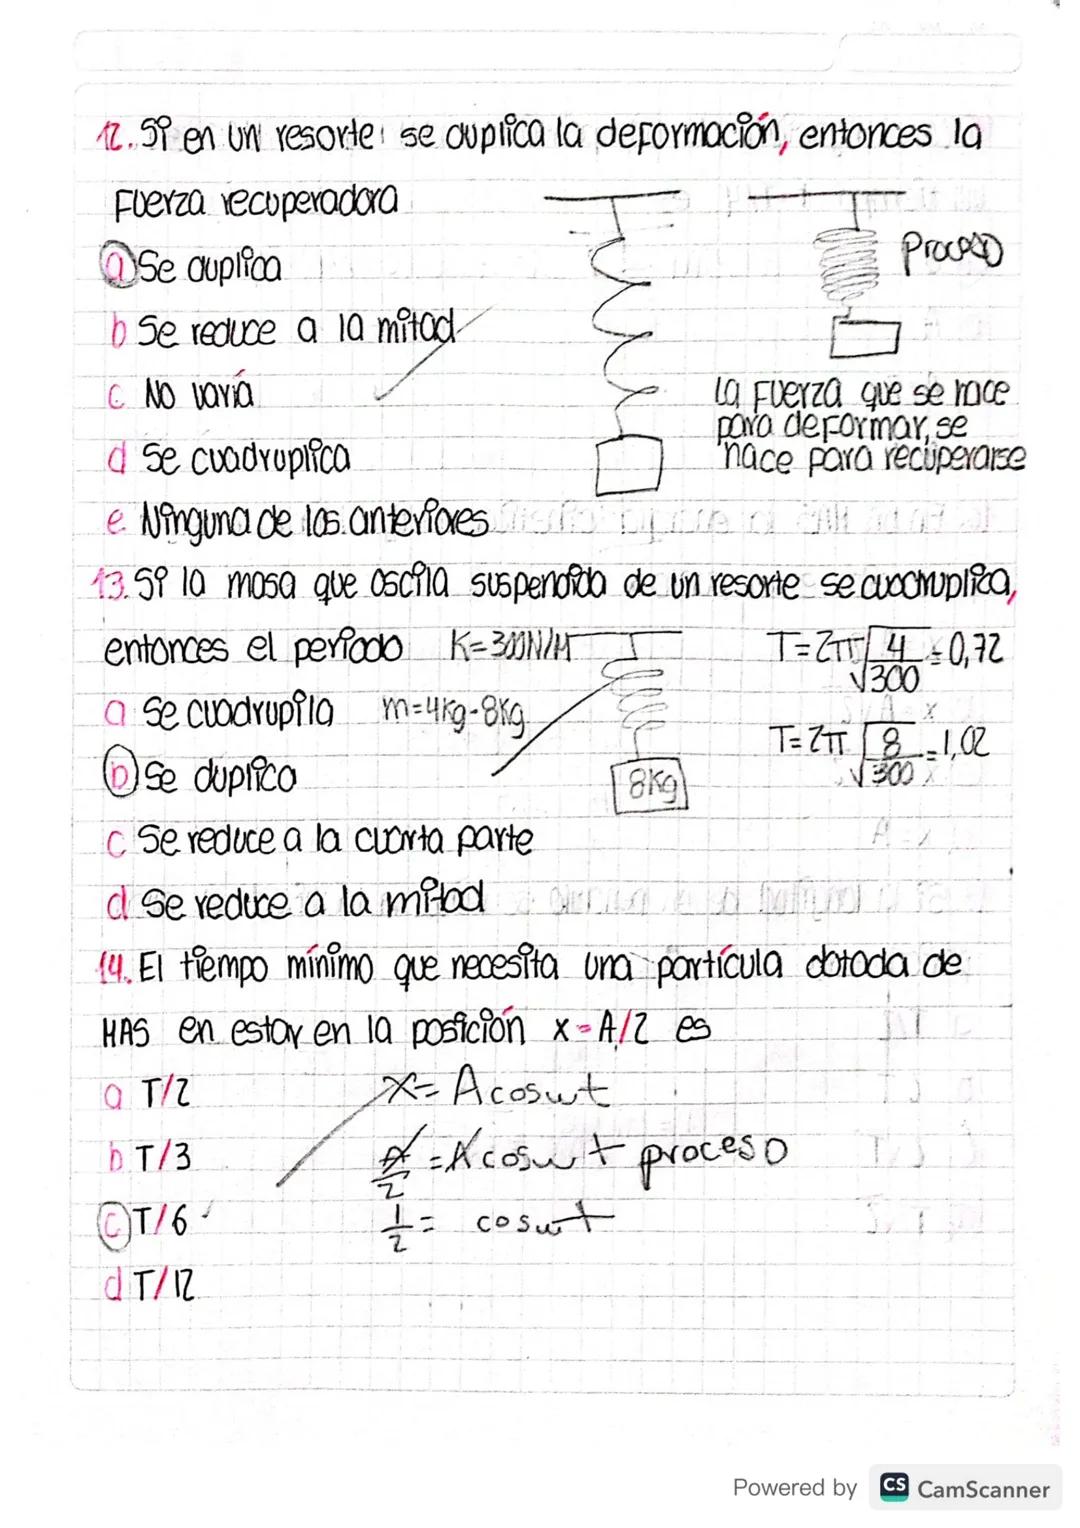 12. Si en un resorte se duplica la deformación, entonces la
Fuerza recuperadora
a Se duplica
b Se reduce a la mitad
c No varía
d Se cuadruplica
e Ninguna de las anteriores
Proceso
la Fuerza que se hace
para deformar, se
hace para recuperarse
13. Si la masa que oscila suspendida de un resorte se cuadruplica,
entonces el periodo K=300N/M
a Se cuadrupila m=4Kg-8Kg
b Se duplica
c Se reduce a la cuarta parte
d Se reduce a la mitad
T=2π√4/300=0,72
T=2π√8/300=1,02
8Kg
14. El tiempo mínimo que necesita una partícula dotada de
HAS en estar en la posición x=A/2 es
a T/2
b T/3
c T/6
d T/12
x=Acoswt
A/2=Acoswt proceso
1/2= coswt
Powered by CS CamScanner